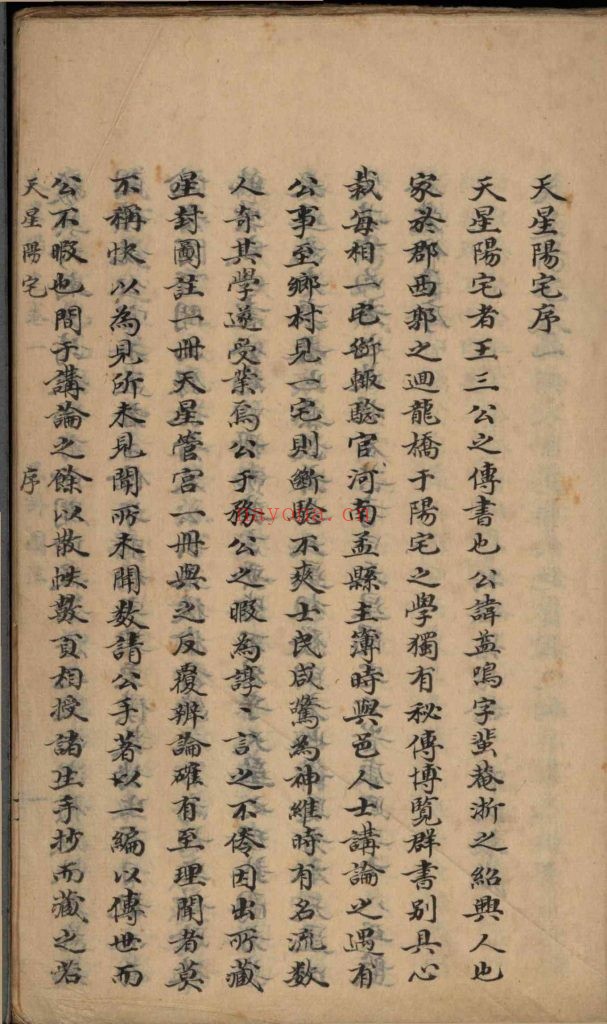 天星陽宅序
天星陽宅者王三公之傳書也公諱蓋鳴字蜚菴浙之紹興人也
家於郡西郭之迴龍橋于陽宅之學獨有秘傳博覽群書別具心
裁每相一宅斷輒騐官河南孟縣主簿時與邑人士講論之遇有
公事至鄉村見一宅則斷騐不爽士民咸驚為神維時有名流数
人奇其學遂受業焉公于務公之暇為諄〻言之不倦因出所藏
星封圖註一冊天星管宫一冊與之反覆辨論確有至理聞者莫
不稱快以為見所未見聞所未聞数請公手著以一編以傳世而
公不暇也間于講論之餘以散帙數頁相授諸生手抄而藏之若
天星陽宅 序